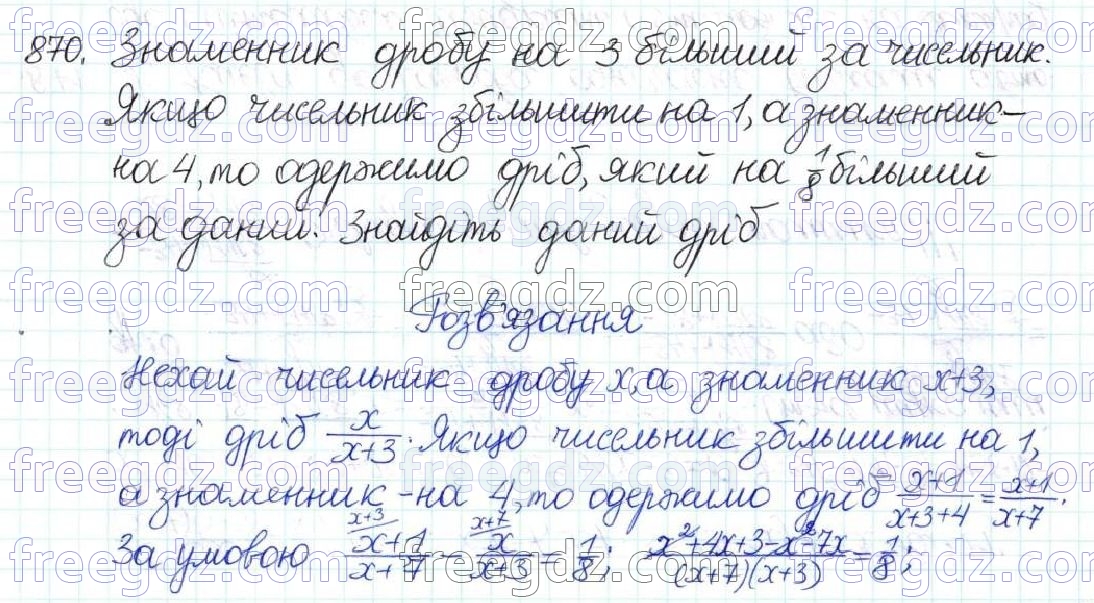 870. Знаменник дробу на 3 більший за чисельник.
Якщо чисельник збільшити на 1, а знаменник –
на 4, то одержимо дріб, який на 1/8 більший
за даний. Знайдіть даний дріб
Розв'язання
Нехай чисельник дробу x, а знаменник x+3,
тоді дріб x/(x+3). Якщо чисельник збільшити на 1,
а знаменник – на 4, то одержимо дріб (x+1)/(x+3+4) = (x+1)/(x+7).
За умовою ^(x+3) (x+1)/(x+7) – ^(x+7) x/(x+3) = 1/8; (x²+4x+3-x²-7x)/((x+7)(x+3)) = 1/8;
freegdz.com